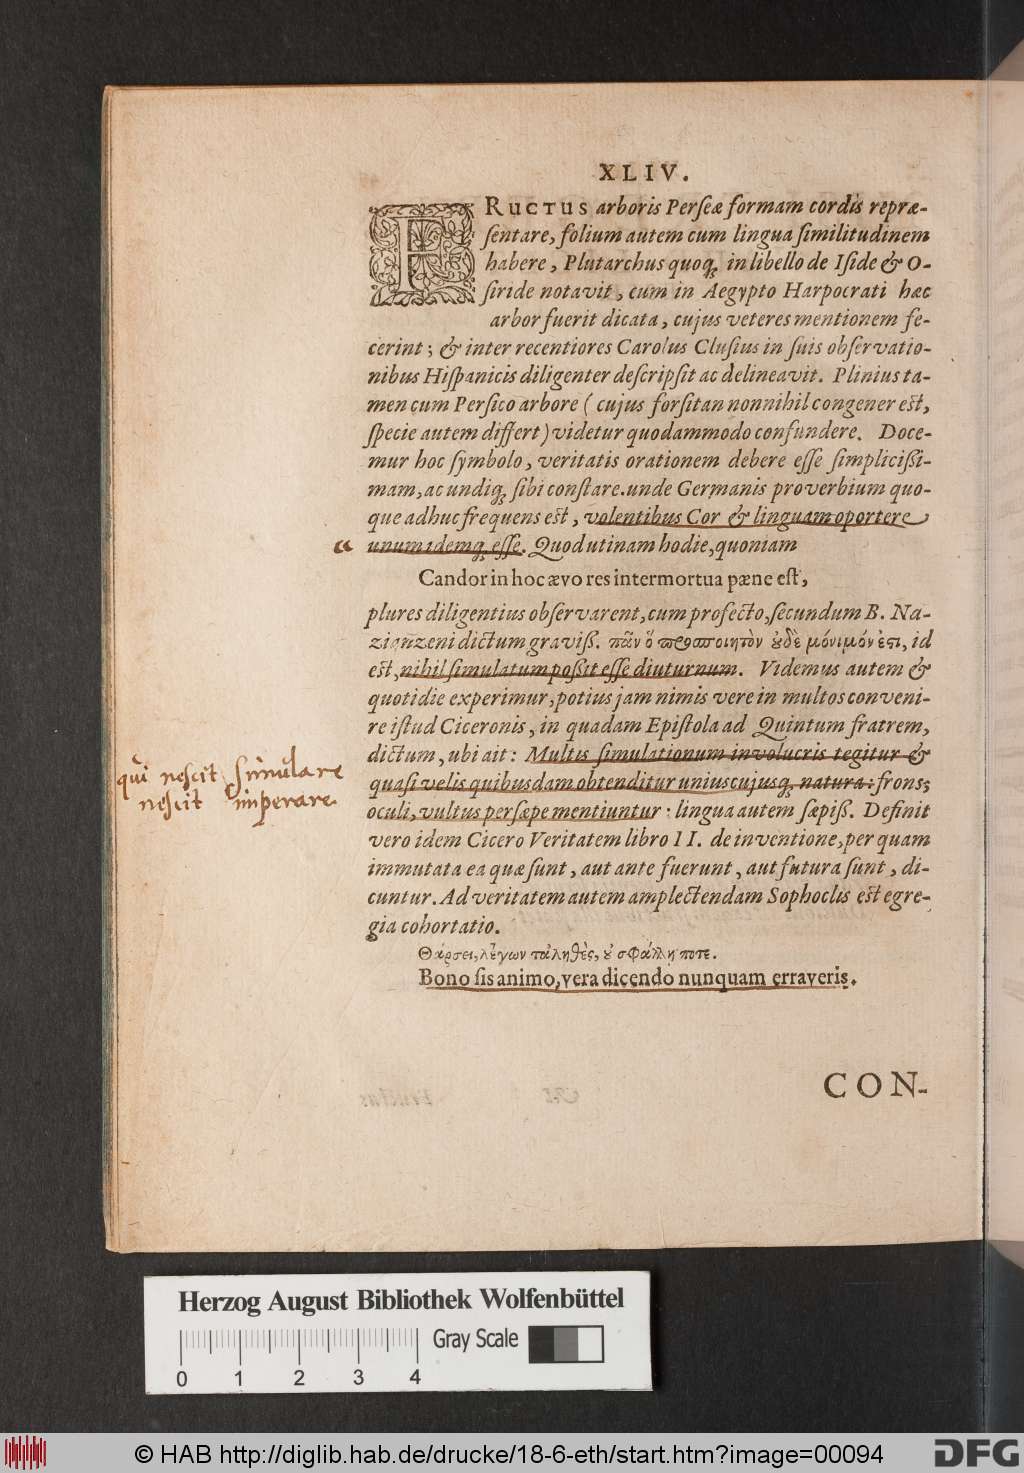 XLIV.
FRUCTUS arboris Perseæ formam cordis repræ-
sentare, folium autem cum lingua similitudinem
habere, Plutarchus quoq; in libello de Iside & O-
siride notavit, cum in Aegypto Harpocrati hæc
arbor fuerit dicata, cujus veteres mentionem fe-
cerint; & inter recentiores Carolus Clusius in suis observatio-
nibus Hispanicis diligenter descripsit ac delineavit. Plinius ta-
men cum Persico arbore ( cujus forsitan nonnihil congener est,
specie autem differt) videtur quodammodo confundere. Doce-
mur hoc symbolo, veritatis orationem debere esse simplicißi-
mam, ac undiq; sibi constare. unde Germanis proverbium quo-
que adhuc frequens est, volentibus Cor & linguam oportere
“ unum idemq; esse. Quod utinam hodie, quoniam
Candor in hoc ævo res intermortua pæne est,
plures diligentius observarent, cum profecto, secundum B. Na-
zianzeni dictum graviß. πᾶν ὁ προσποιητὸν ȣδὲ μόνιμόν ἐστι, id
est, nihil simulatum poßit esse diuturnum. Videmus autem &
quotidie experimur, potius jam nimis vere in multos conveni-
re istud Ciceronis, in quadam Epistola ad Quintum fratrem,
dictum, ubi ait: Multis simulationum involucris tegitur &
quasi velis quibusdam obtenditur uniuscujusq; natura: frons,
oculi, vultus persæpe mentiuntur: lingua autem sæpiß. Definit
vero idem Cicero Veritatem libro II. de inventione, per quam
immutata ea quæ sunt, aut ante fuerunt, aut futura sunt, di-
cuntur. Ad veritatem autem amplectendam Sophoclis est egre-
gia cohortatio.
Θάρσει, λέγων τἀληθὲς, ȣ σφάλλῃ ποτε.
Bono sis animo, vera dicendo nunquam erraveris.
CON-
qui nescit simulare
nescit imperare.
Herzog August Bibliothek Wolfenbüttel
Gray Scale
0 1 2 3 4
© HAB http://diglib.hab.de/drucke/18-6-eth/start.htm?image=00094
DFG